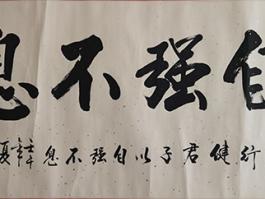 自强不息
行健君子以自强不息
夏